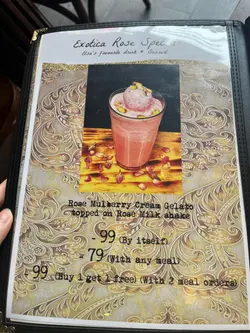 Exotica Rose Special
Rose Mulberry Cream Gelato
topped on Rose Milk shake
- 99 (By itself)
- 79 (With any meal)
- 99 (Buy 1 get 1 free) (With 2 meal orders)